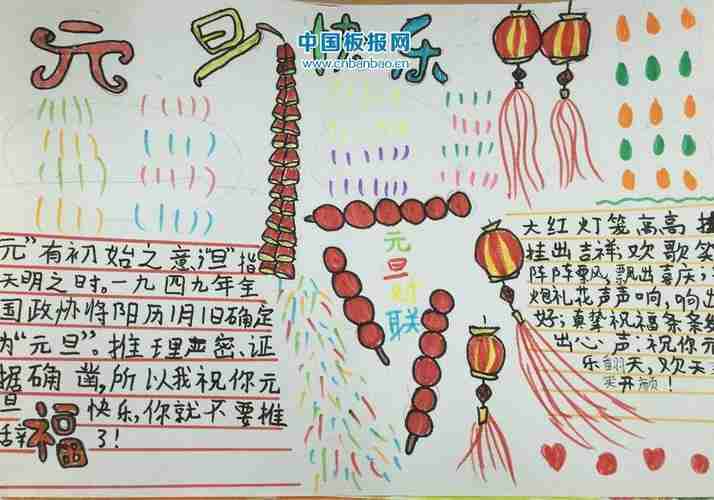 元旦快乐
中国板报网
www.cnbanbao.cn
元”有初始之意,“旦”指
天明之时。一九四九年全
国政协将阳历1月1日确定
为“元旦”。推理严密、证
据确凿,所以我祝你元
旦 快乐,你就不要推
辞 了!
福
元旦对联
大红灯笼高高
挂出吉祥;欢歌笑
阵阵飘,飘出喜庆;
炮礼花声声响,响出
好;真挚祝福条条
出心声:祝你元
乐翻天,欢天
笑开颜!